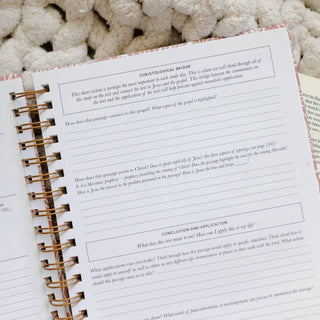 CHRISTOLOGICAL BRIDGE
This short section is perhaps the most important in each study day. This is where we will think through all of
the study on the text and connect the text to Jesus and the gospel. This bridge between the commentary on
the text and the application of the text will help prevent against moralistic application.
How does this passage connect to the gospel? What aspect of the gospel is highlighted?
How does this passage point to Christ? Does it speak explicitly of Jesus? Are there aspects of typology (see pg.
Is it a Messianic prophecy – prophecy foretelling the coming of Christ? Does the passage highlight the need for the coming Messiah?
How is Jesus the answer to the problem presented in the passage? How is Jesus the true and better
CONCLUSION AND APPLICATION
What does this text mean to me? How can I apply this to my life?
What applications can you make? Think through how this passage would apply to specific situations. Think about how it
would apply to yourself as well as others in very different life circumstances or places in their walk with the Lord. What actions
should this passage cause us to take?